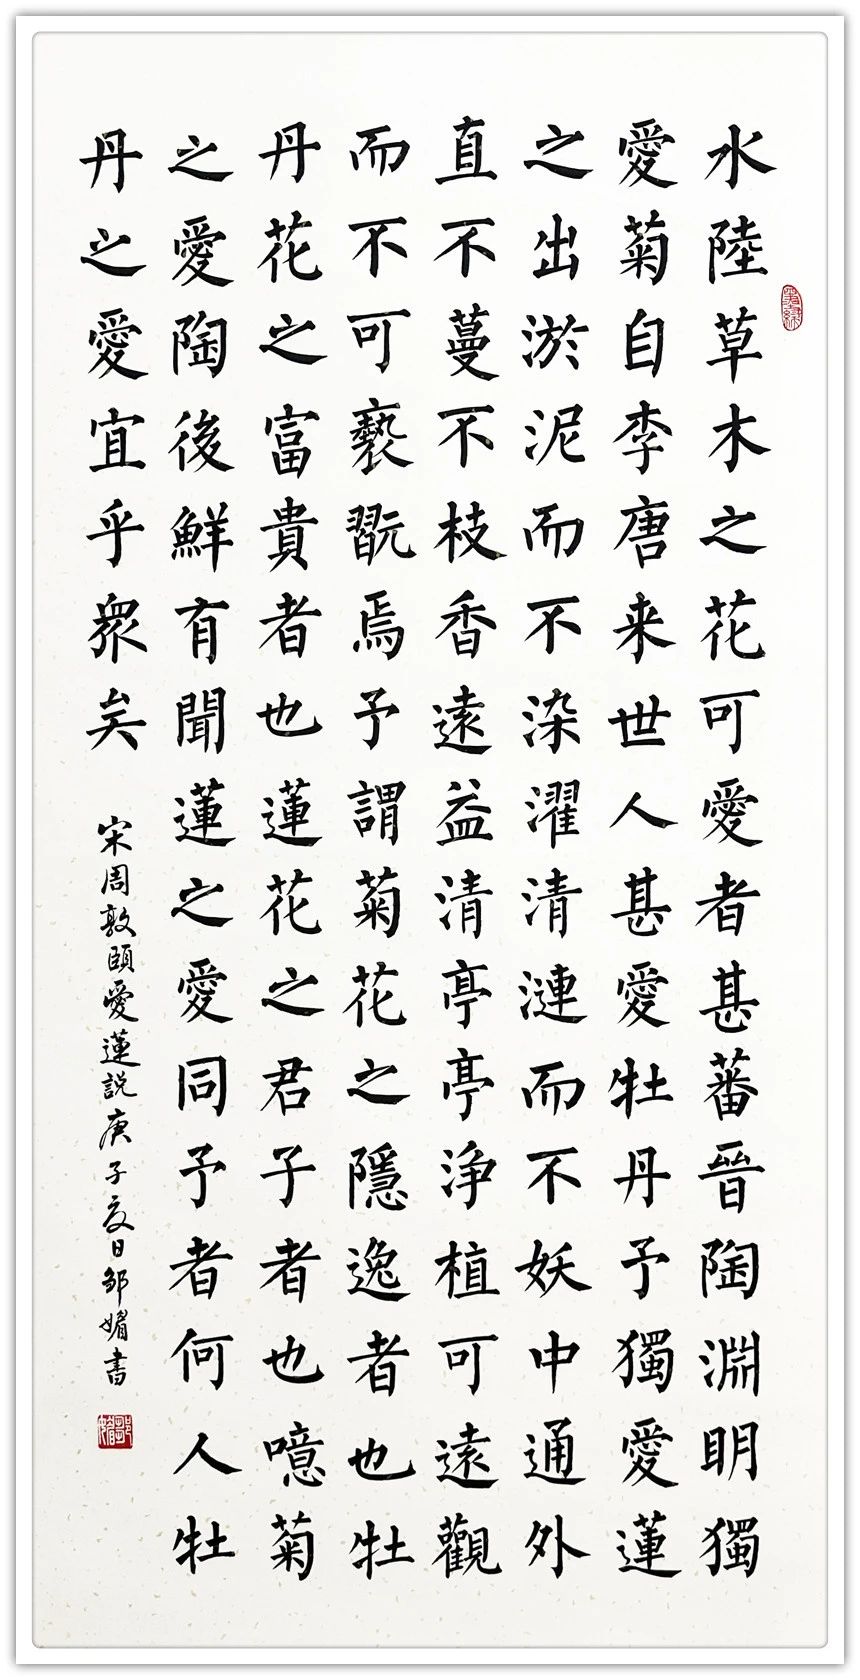 水陸草木之花可愛者甚蕃晉陶淵明獨
愛菊自李唐来世人甚愛牡丹予獨愛蓮
之出淤泥而不染濯清漣而不妖中通外
直不蔓不枝香遠益清亭亭淨植可遠觀
而不可褻翫焉予謂菊花之隱逸者也牡
丹花之富貴者也蓮花之君子者也噫菊
之愛陶後鮮有聞蓮之愛同予者何人牡
丹之愛宜乎衆矣
宋周敦頤愛蓮說庚子夏日鄒媚書